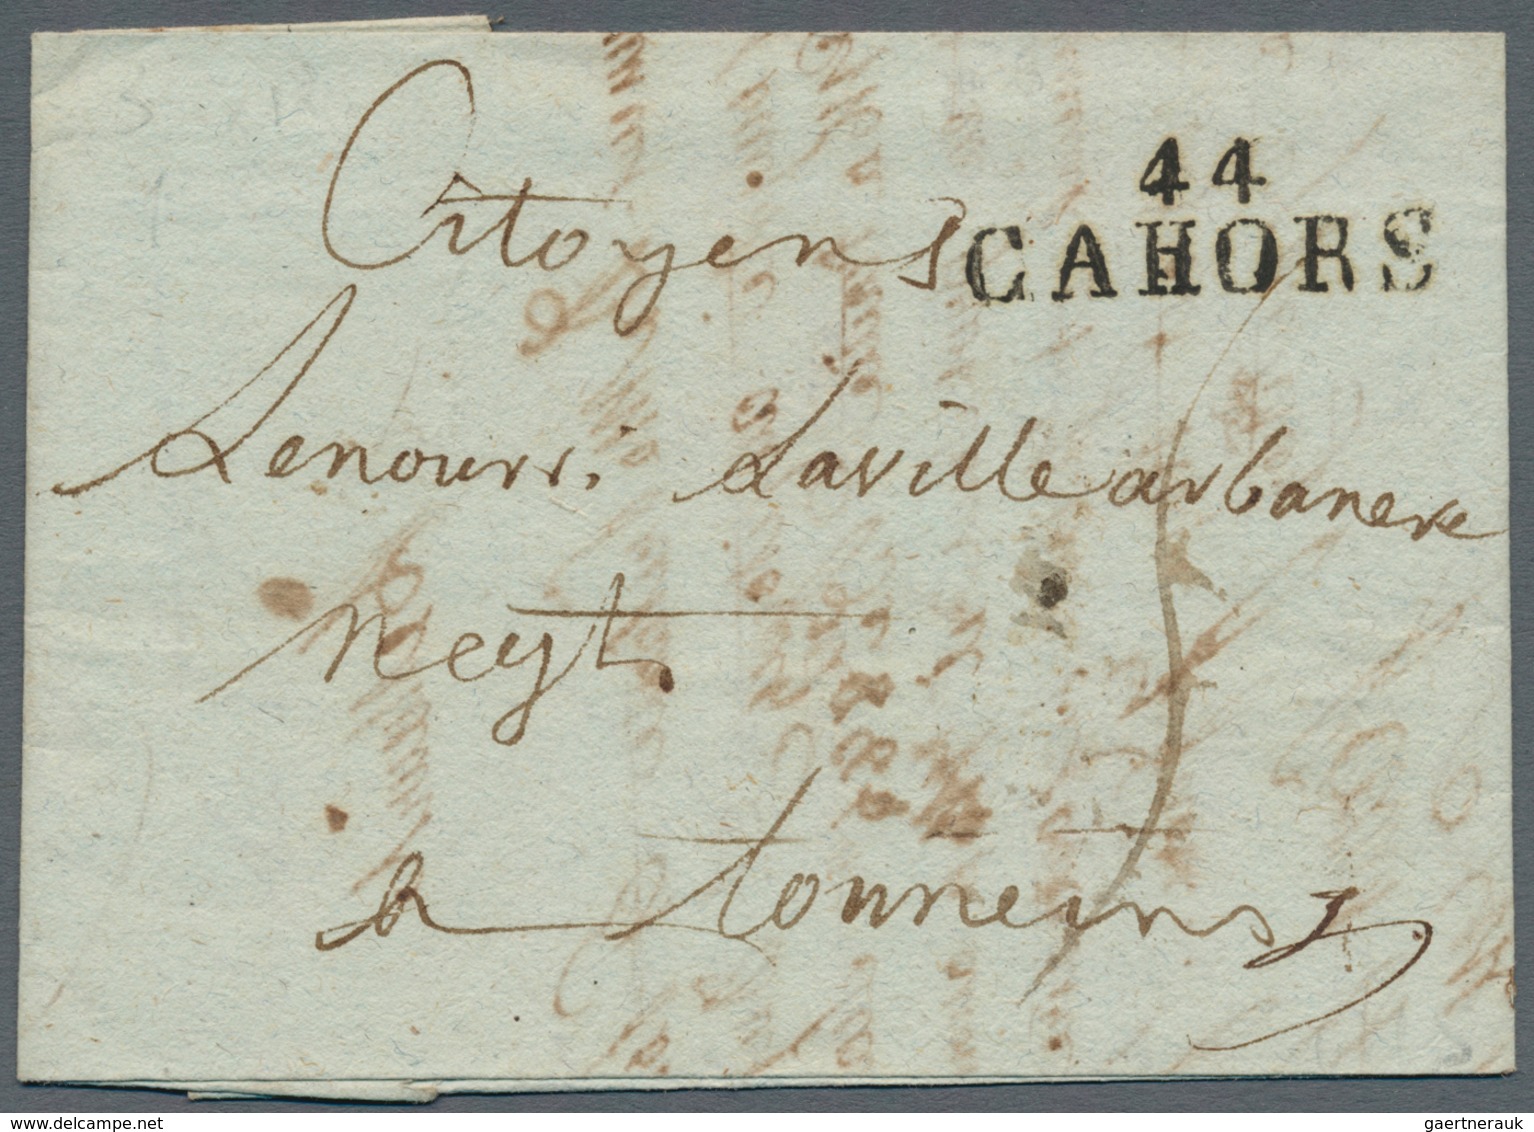 44
CAHORS
Citoyens
Lenourri. Laville arbanere
neyt.
a tonneins
www.delcampe.net
gaertnerauk